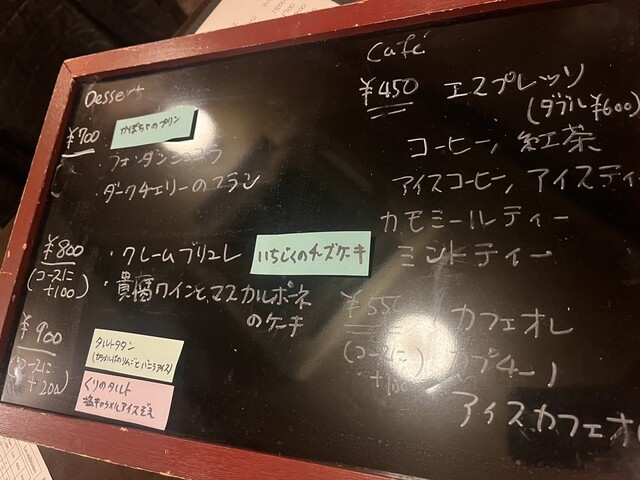 Dessert
¥700
かぼちゃのプリン
・フォンダンショコラ
・ダークチェリーのフラン
¥800
(コースに
+100)
・クレームブリュレ
いちじくのチーズケーキ
・貴腐ワインとマスカルポーネ
のケーキ
¥900
(コースに
+200)
タルトタタン
くりのタルト
塩キャラメルアイスぞえ
Café
¥450
エスプレッソ
(ダブル¥600)
コーヒー, 紅茶
アイスコーヒー, アイスティー
カモミールティー
ミントティー
¥550
(コースに
+100)
カフェオレ
カプチーノ
アイスカフェオレ